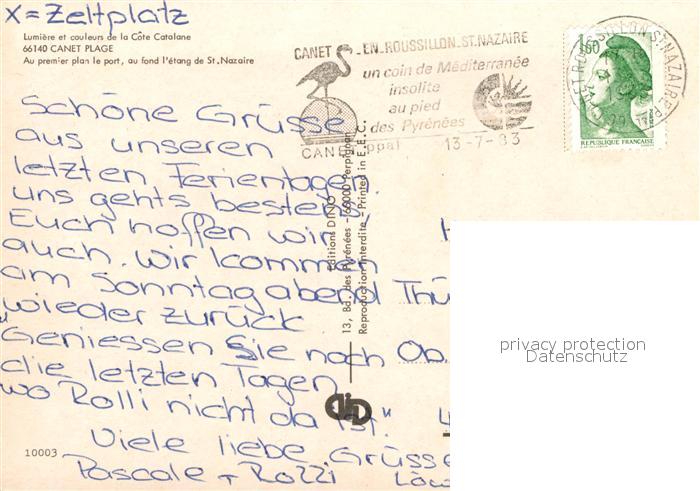 X = Zeltplatz
Lumière et couleurs de la Côte Catalane
66140 CANET PLAGE
Au premier plan le port, au fond l'étang de St. Nazaire
CANET EN ROUSSILLON ST. NAZAIRE
un coin de Méditerranée
insolite
au pied
des Pyrénées
CANET
13-7-83
1,60
REPUBLIQUE FRANÇAISE
Schöne Grüsse
aus unseren
letzten Ferientagen.
Uns gehts bestens!
Euch hoffen wir
auch. Wir kommen
am Sonntag abend
wieder zurück
"Geniessen Sie noch
die letzten Tagen
wo Rolli nicht da ist."
Viele liebe Grüsse
Pascale + Rozzi
Thü
Ob
Löw
Editions DINO
13, Bd. des Pyrénées - 66000 Perpignan
Reproduction Interdite - Printed in E.E.C.
10003
privacy protection
Datenschutz